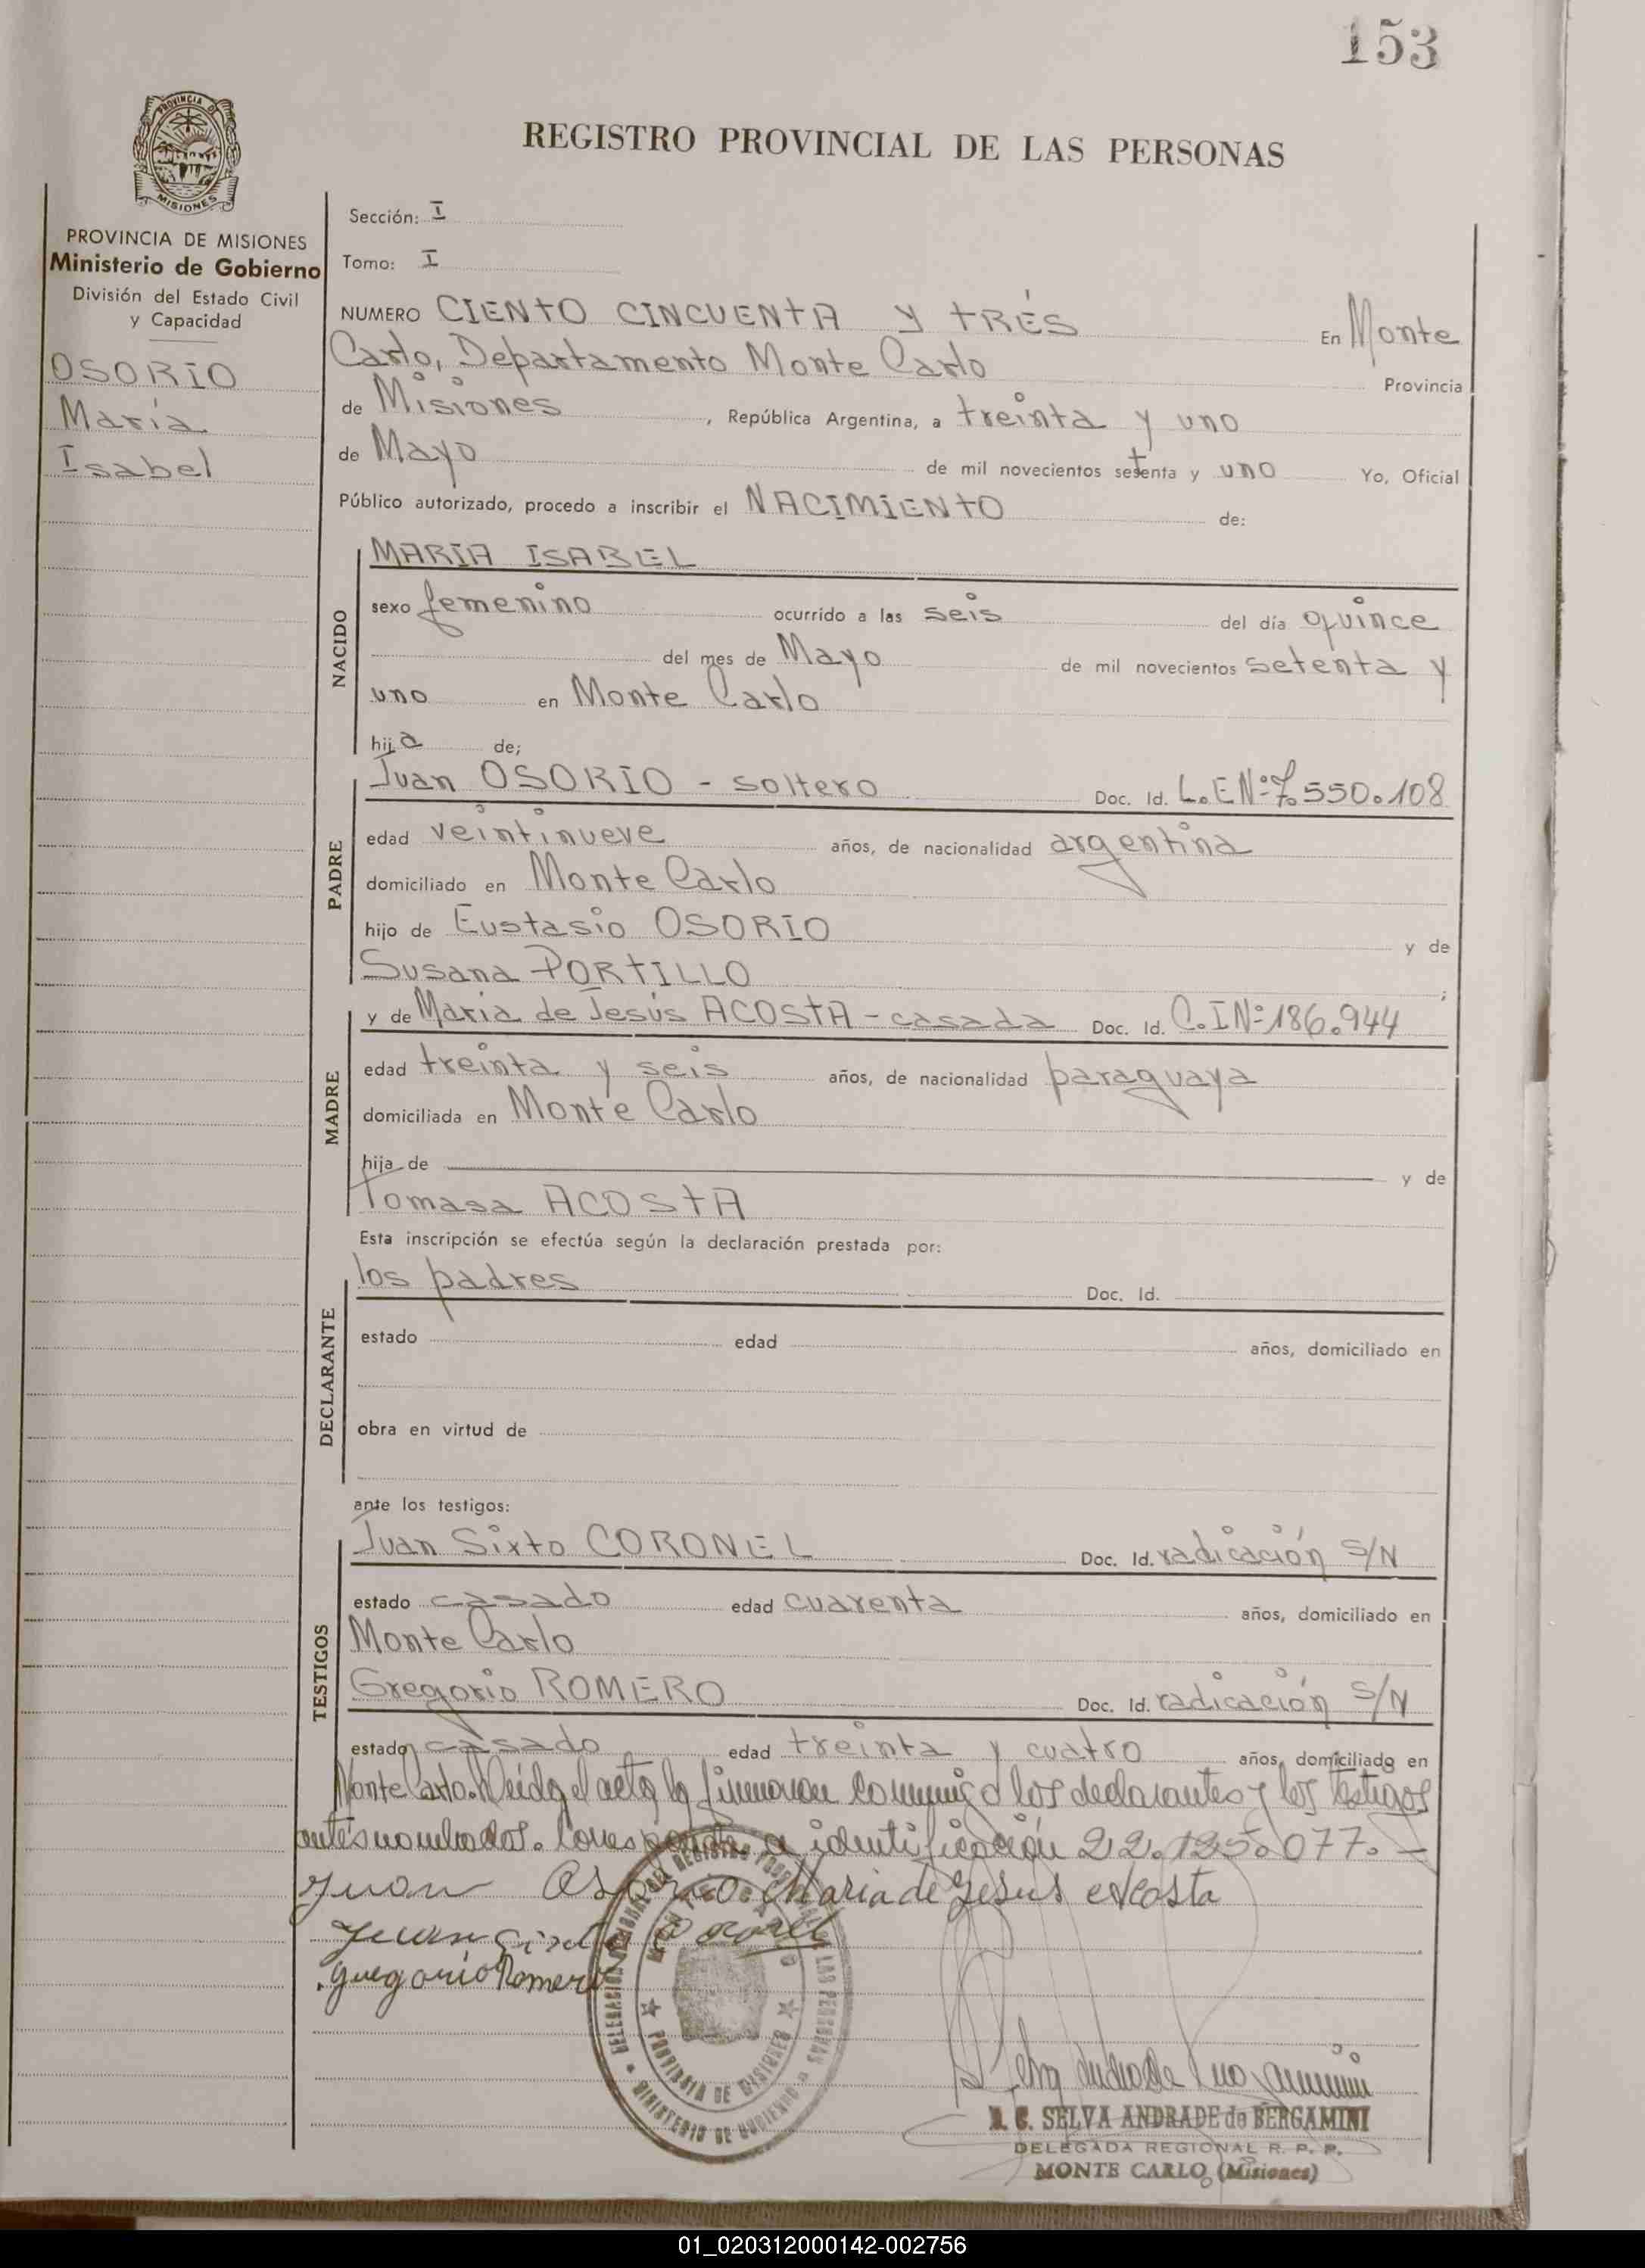 153
REGISTRO PROVINCIAL DE LAS PERSONAS
PROVINCIA DE MISIONES
PROVINCIA DE MISIONES
Ministerio de Gobierno
División del Estado Civil
y Capacidad
OSORIO
María
Isabel
Sección: I
Tomo: I
NUMERO CIENTO CINCUENTA Y TRÉS En Monte
Carlo, Departamento Monte Carlo Provincia
de Misiones, República Argentina, a treinta y uno
de Mayo de mil novecientos setenta y uno Yo, Oficial
Público autorizado, procedo a inscribir el NACIMIENTO de:
NACIDO
MARIA ISABEL
sexo femenino ocurrido a las seis del día quince
del mes de Mayo de mil novecientos setenta y
uno en Monte Carlo
hija de;
PADRE
Juan OSORIO - soltero Doc. Id. L.E Nº 7.550.108
edad veintinueve años, de nacionalidad argentina
domiciliado en Monte Carlo
hijo de Eustasio OSORIO y de
Susana PORTILLO ;
MADRE
y de Maria de Jesús ACOSTA - casada Doc. Id. C.I Nº 186.944
edad treinta y seis años, de nacionalidad paraguaya
domiciliada en Monte Carlo
hija de y de
Tomasa ACOSTA
Esta inscripción se efectúa según la declaración prestada por:
DECLARANTE
los padres Doc. Id.
estado edad años, domiciliado en
obra en virtud de
ante los testigos:
TESTIGOS
Juan Sixto CORONEL Doc. Id. radicación S/N
estado casado edad cuarenta años, domiciliado en
Monte Carlo
Gregorio ROMERO Doc. Id. radicación S/N
estado casado edad treinta y cuatro años, domiciliado en
Monte Carlo. Leida el acta la firmaron conmigo los declarantes y los testigos
antes nombrados. Corresponde a identificación 22.125.077. -
Juan Osorio Maria de Jesus Acosta
Juan Sixto Coronel
Gregorio Romero
PROVINCIA DE MISIONES
MINISTERIO DE GOBIERNO
SELVA ANDRADE de BERGAMINI
DELEGADA REGIONAL R. P. P.
MONTE CARLO (Misiones)
01_020312000142-002756